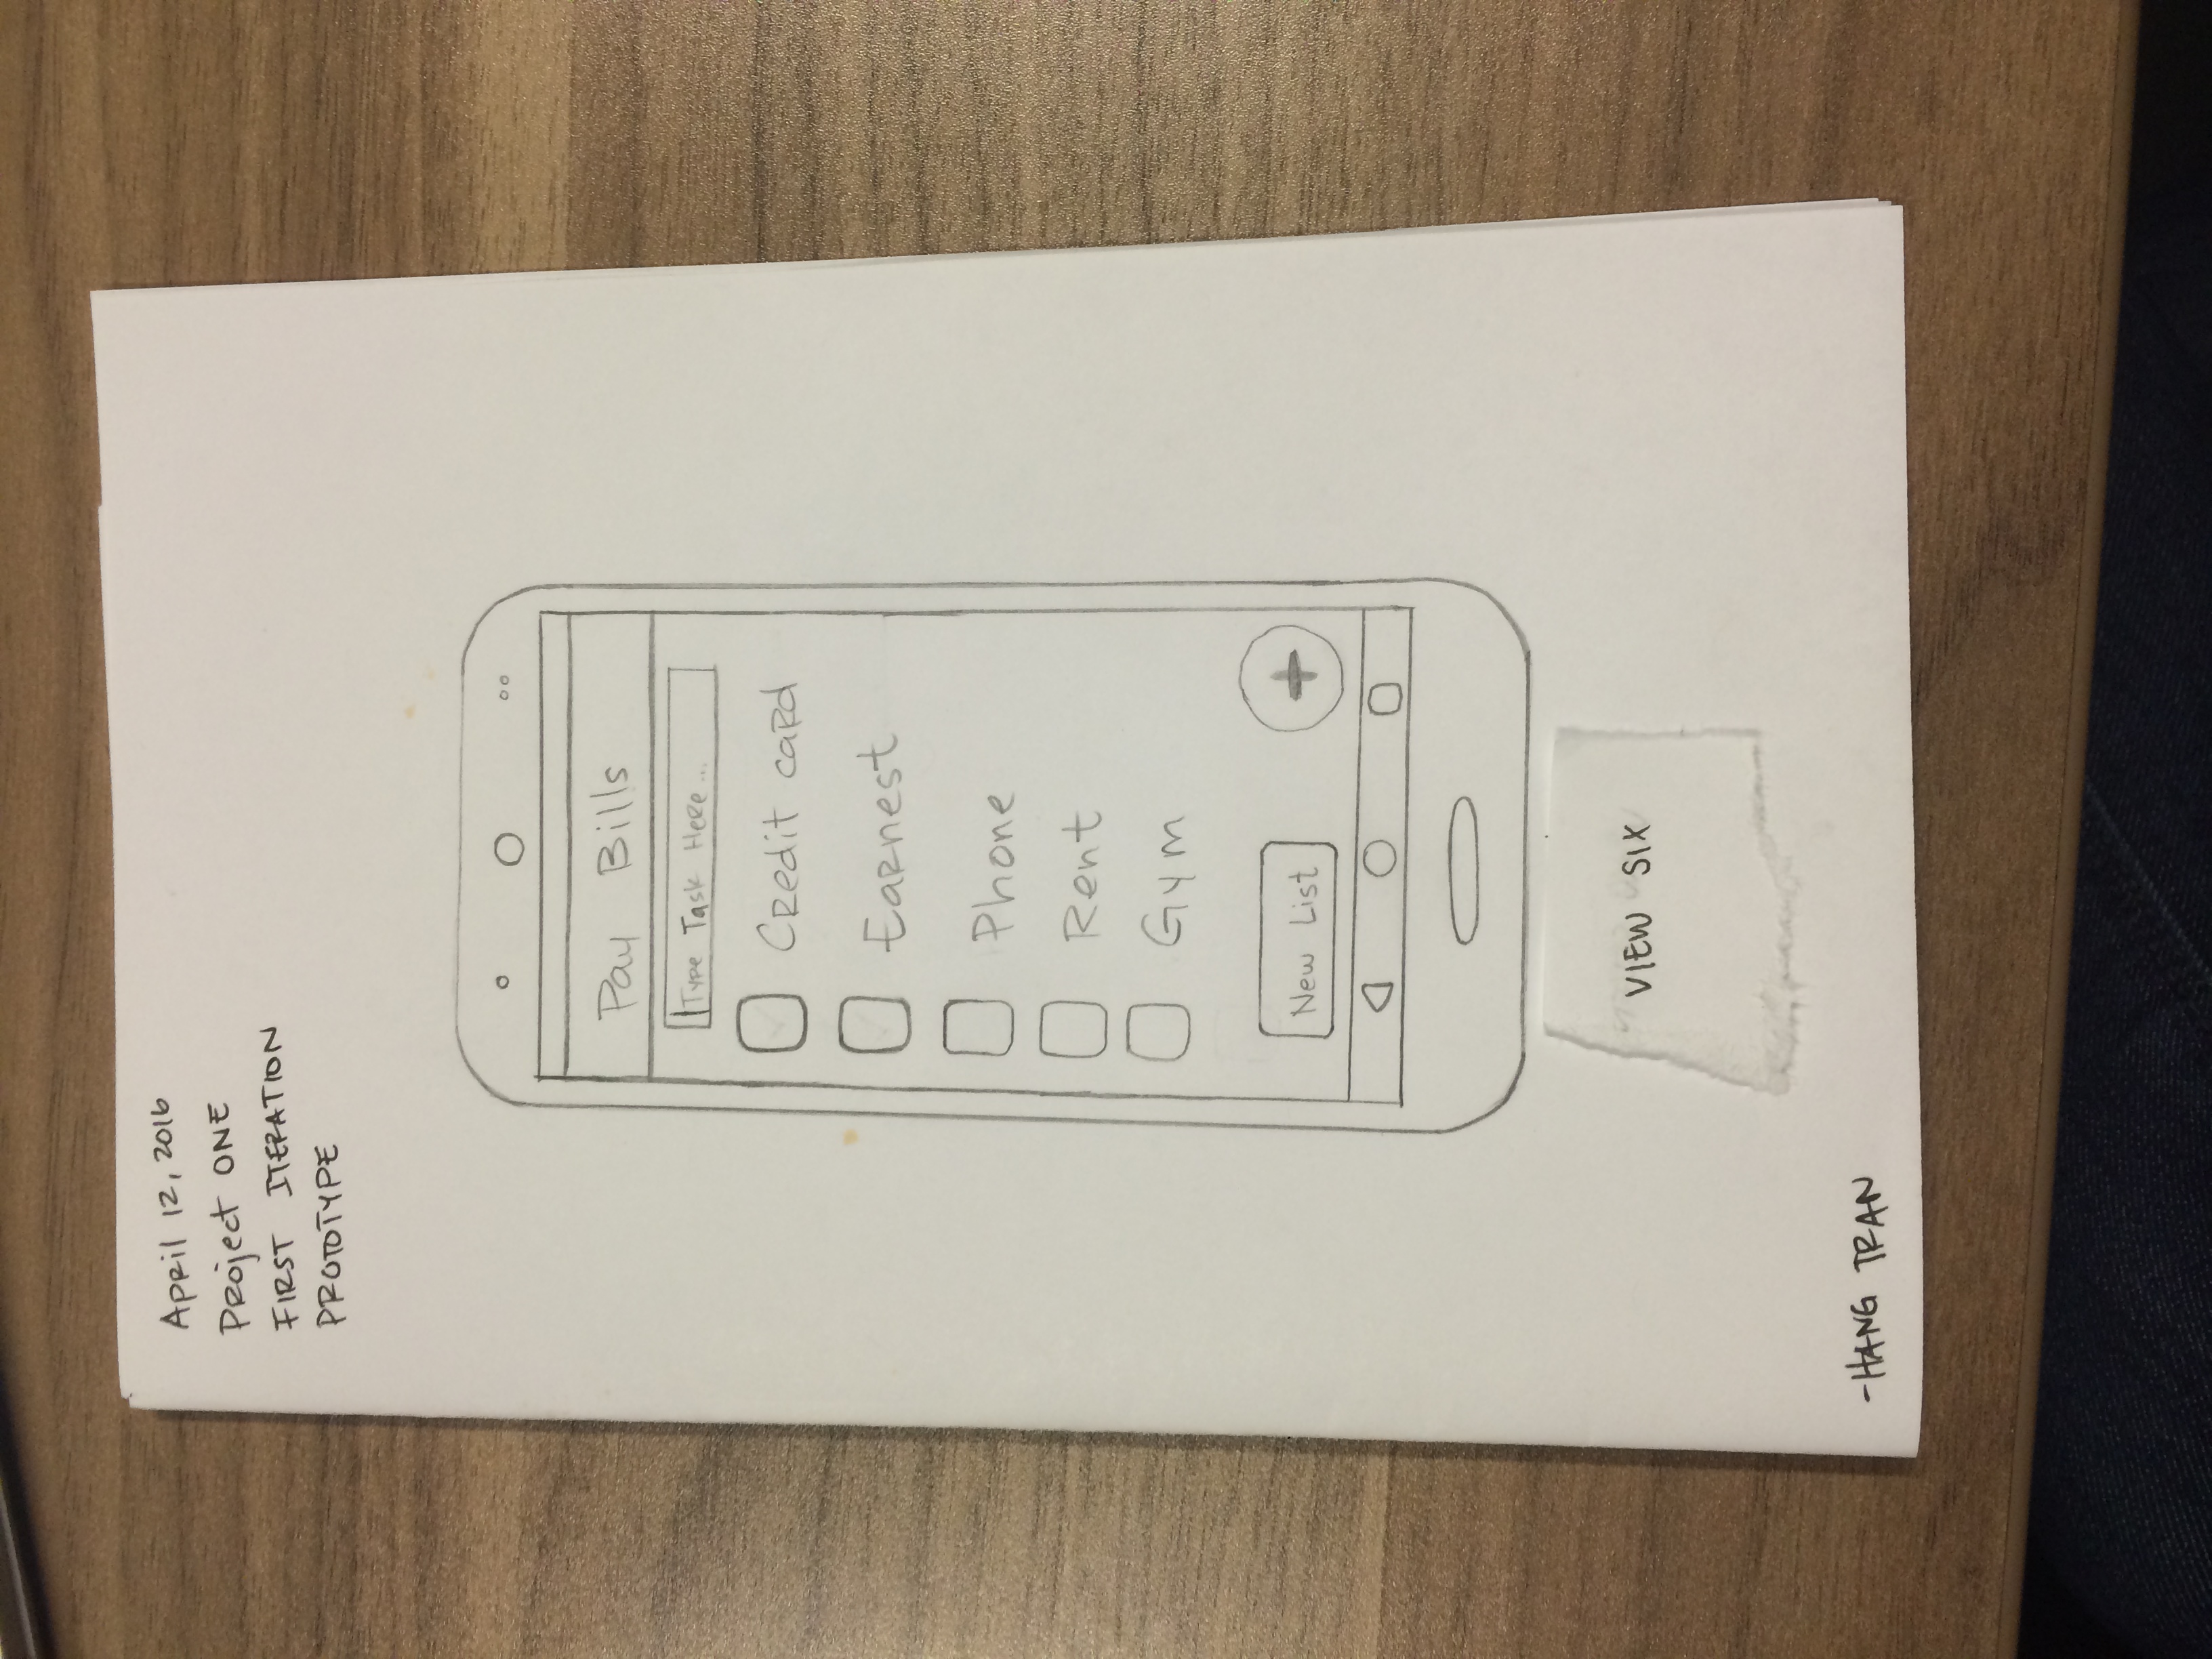 April 12, 2016
Project ONE
FIRST ITERATION
PROTOTYPE
Pay Bills
Type Task Here ...
Credit card
Earnest
Phone
Rent
Gym
New List
+
VIEW SIX
-HANG TRAN